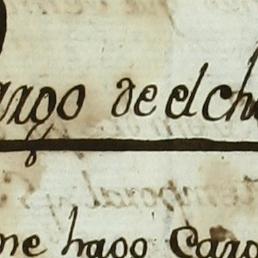 argo de el cha
me hago Carg